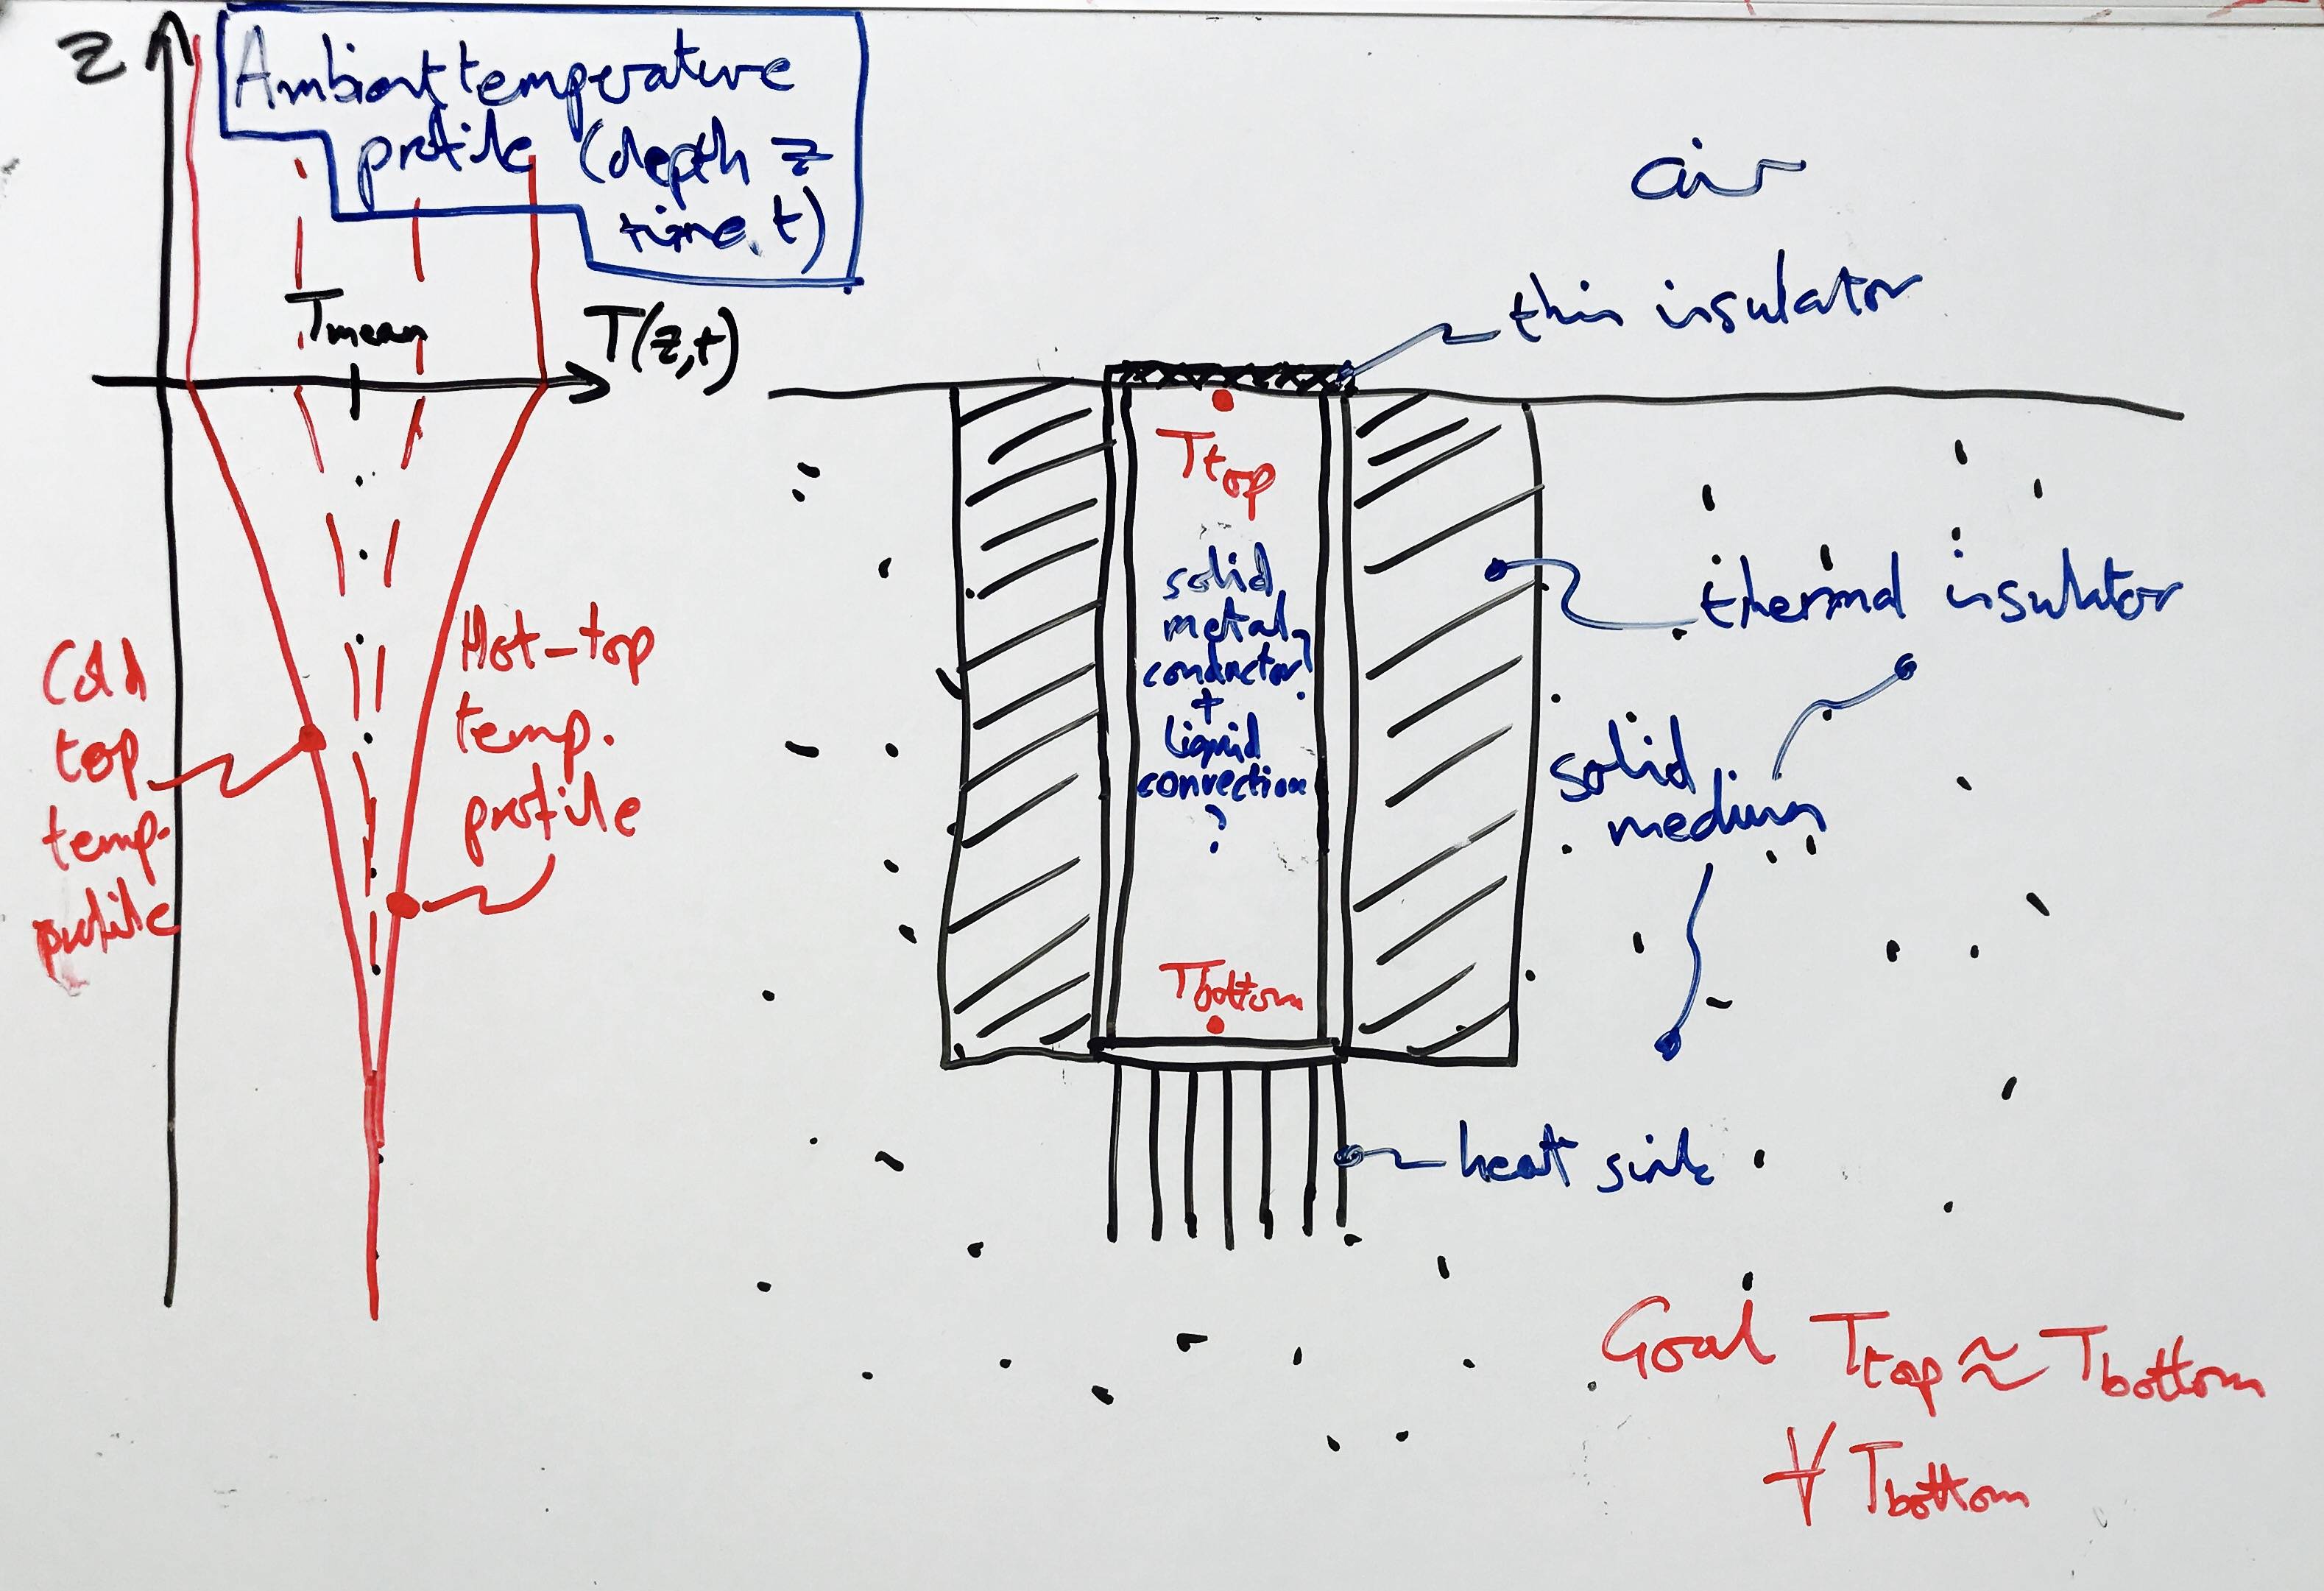 z
Ambient temperature
profile (depth z
time, t)
Tmean
T(z,t)
Cold
top
temp.
profile
Hot-top
temp.
profile
air
thin insulator
Ttop
solid
metal
conductor
+
liquid
convection
?
Tbottom
thermal insulator
solid
medium
heat sink
Goal Ttop ≈ Tbottom
∀ Tbottom